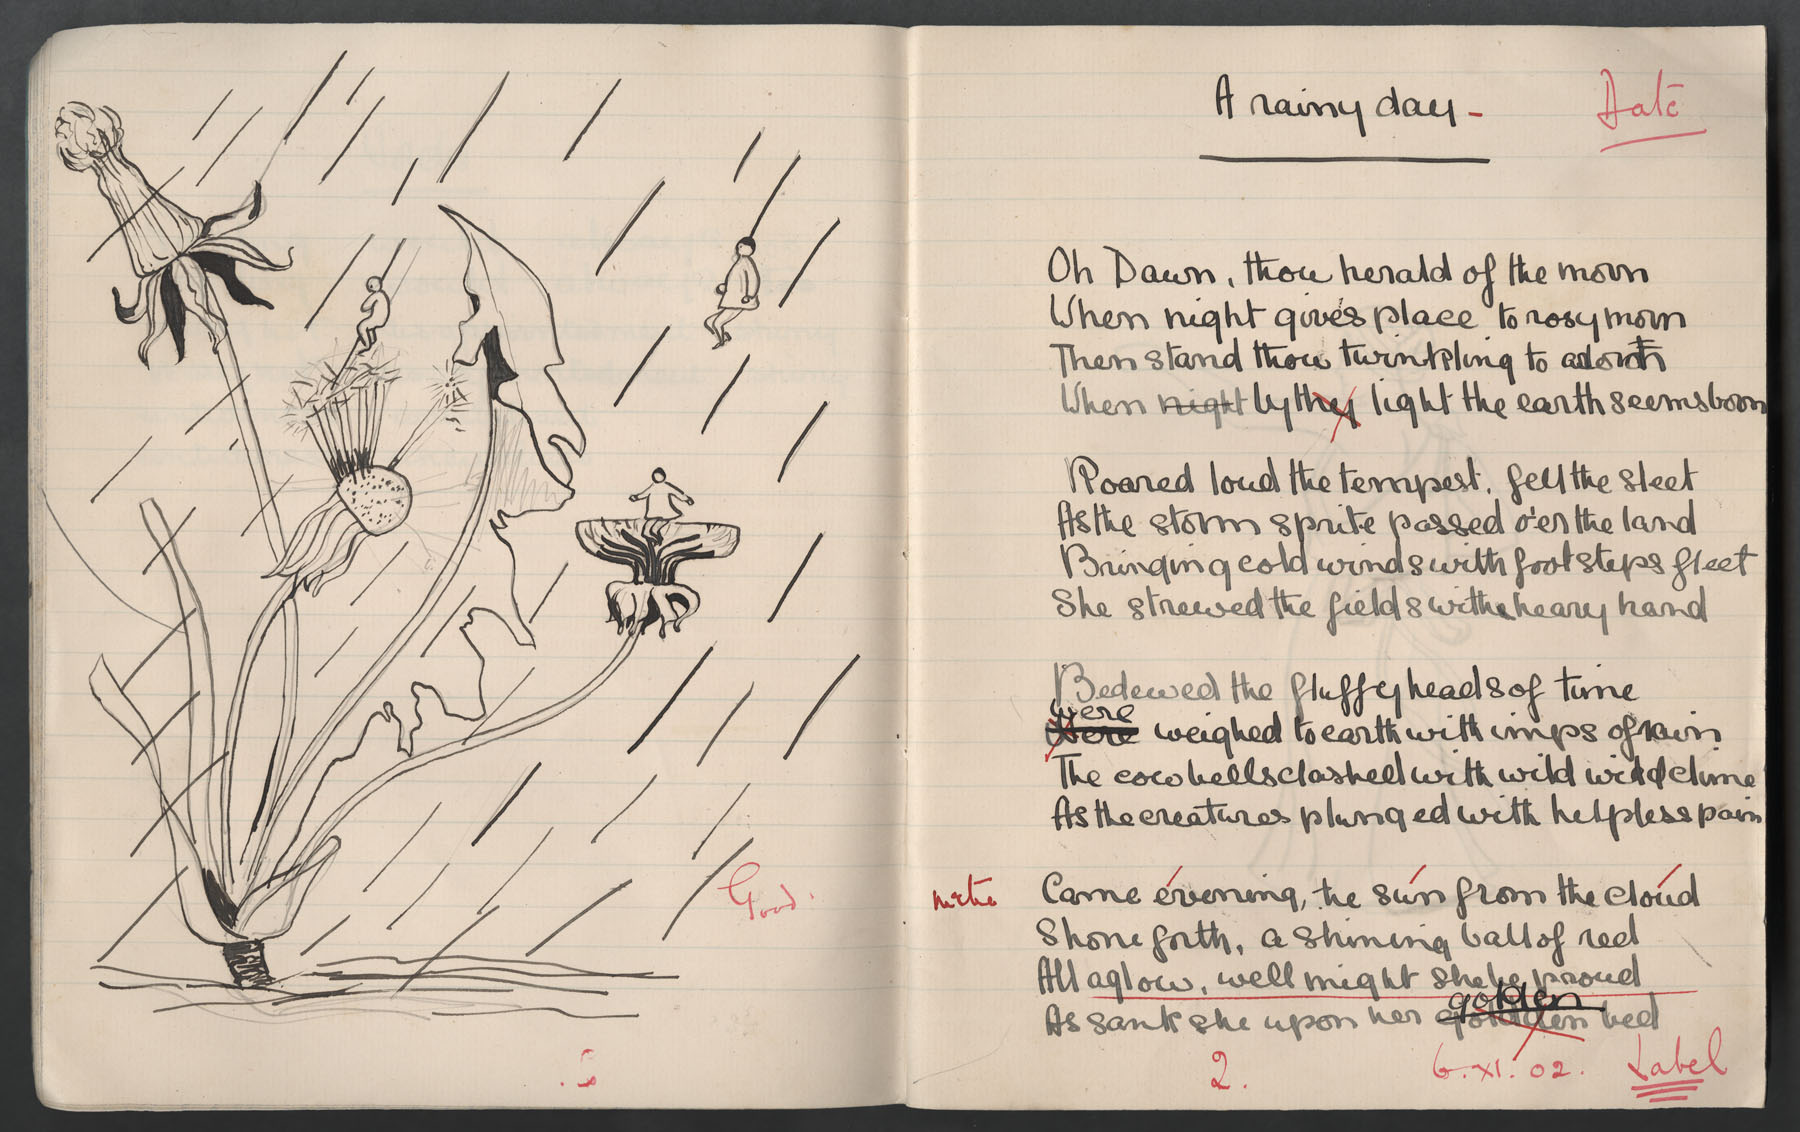 Good.
A rainy day -
Date
Oh Dawn, thou herald of the morn
When night gives place to rosy morn
Then stand thou twinkling to adorn
When night by thy light the earth seems born
Roared loud the tempest, fell the sleet
As the storm sprite passed o'er the land
Bringing cold winds with footsteps fleet
She strewed the fields with heavy hand
Bedewed the fluffy heads of time
were
Were weighed to earth with imps of rain
The cow bells clashed with wild wild chime
As the creatures plunged with helpless pain
metre Came evening, the sun from the cloud
Shone forth, a shining ball of red
All aglow, well might she be proud
golden
As sank she upon her bed
2.
6.XI.02.
Label